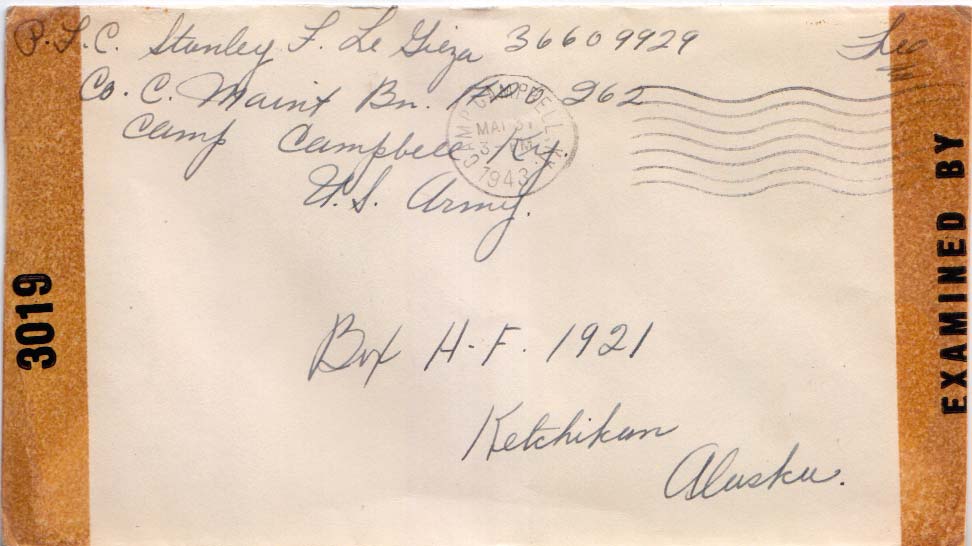 P.F.C. Stanley F. Le Gieza 36609929
Free
Co. C. Maint Bn. 262
Camp Campbell Ky.
U.S. Army.
CAMP CAMPBELL KY.
MAY 31
3 - PM
1943
Box H-F. 1921
Ketchikan
Alaska.
3019
EXAMINED BY